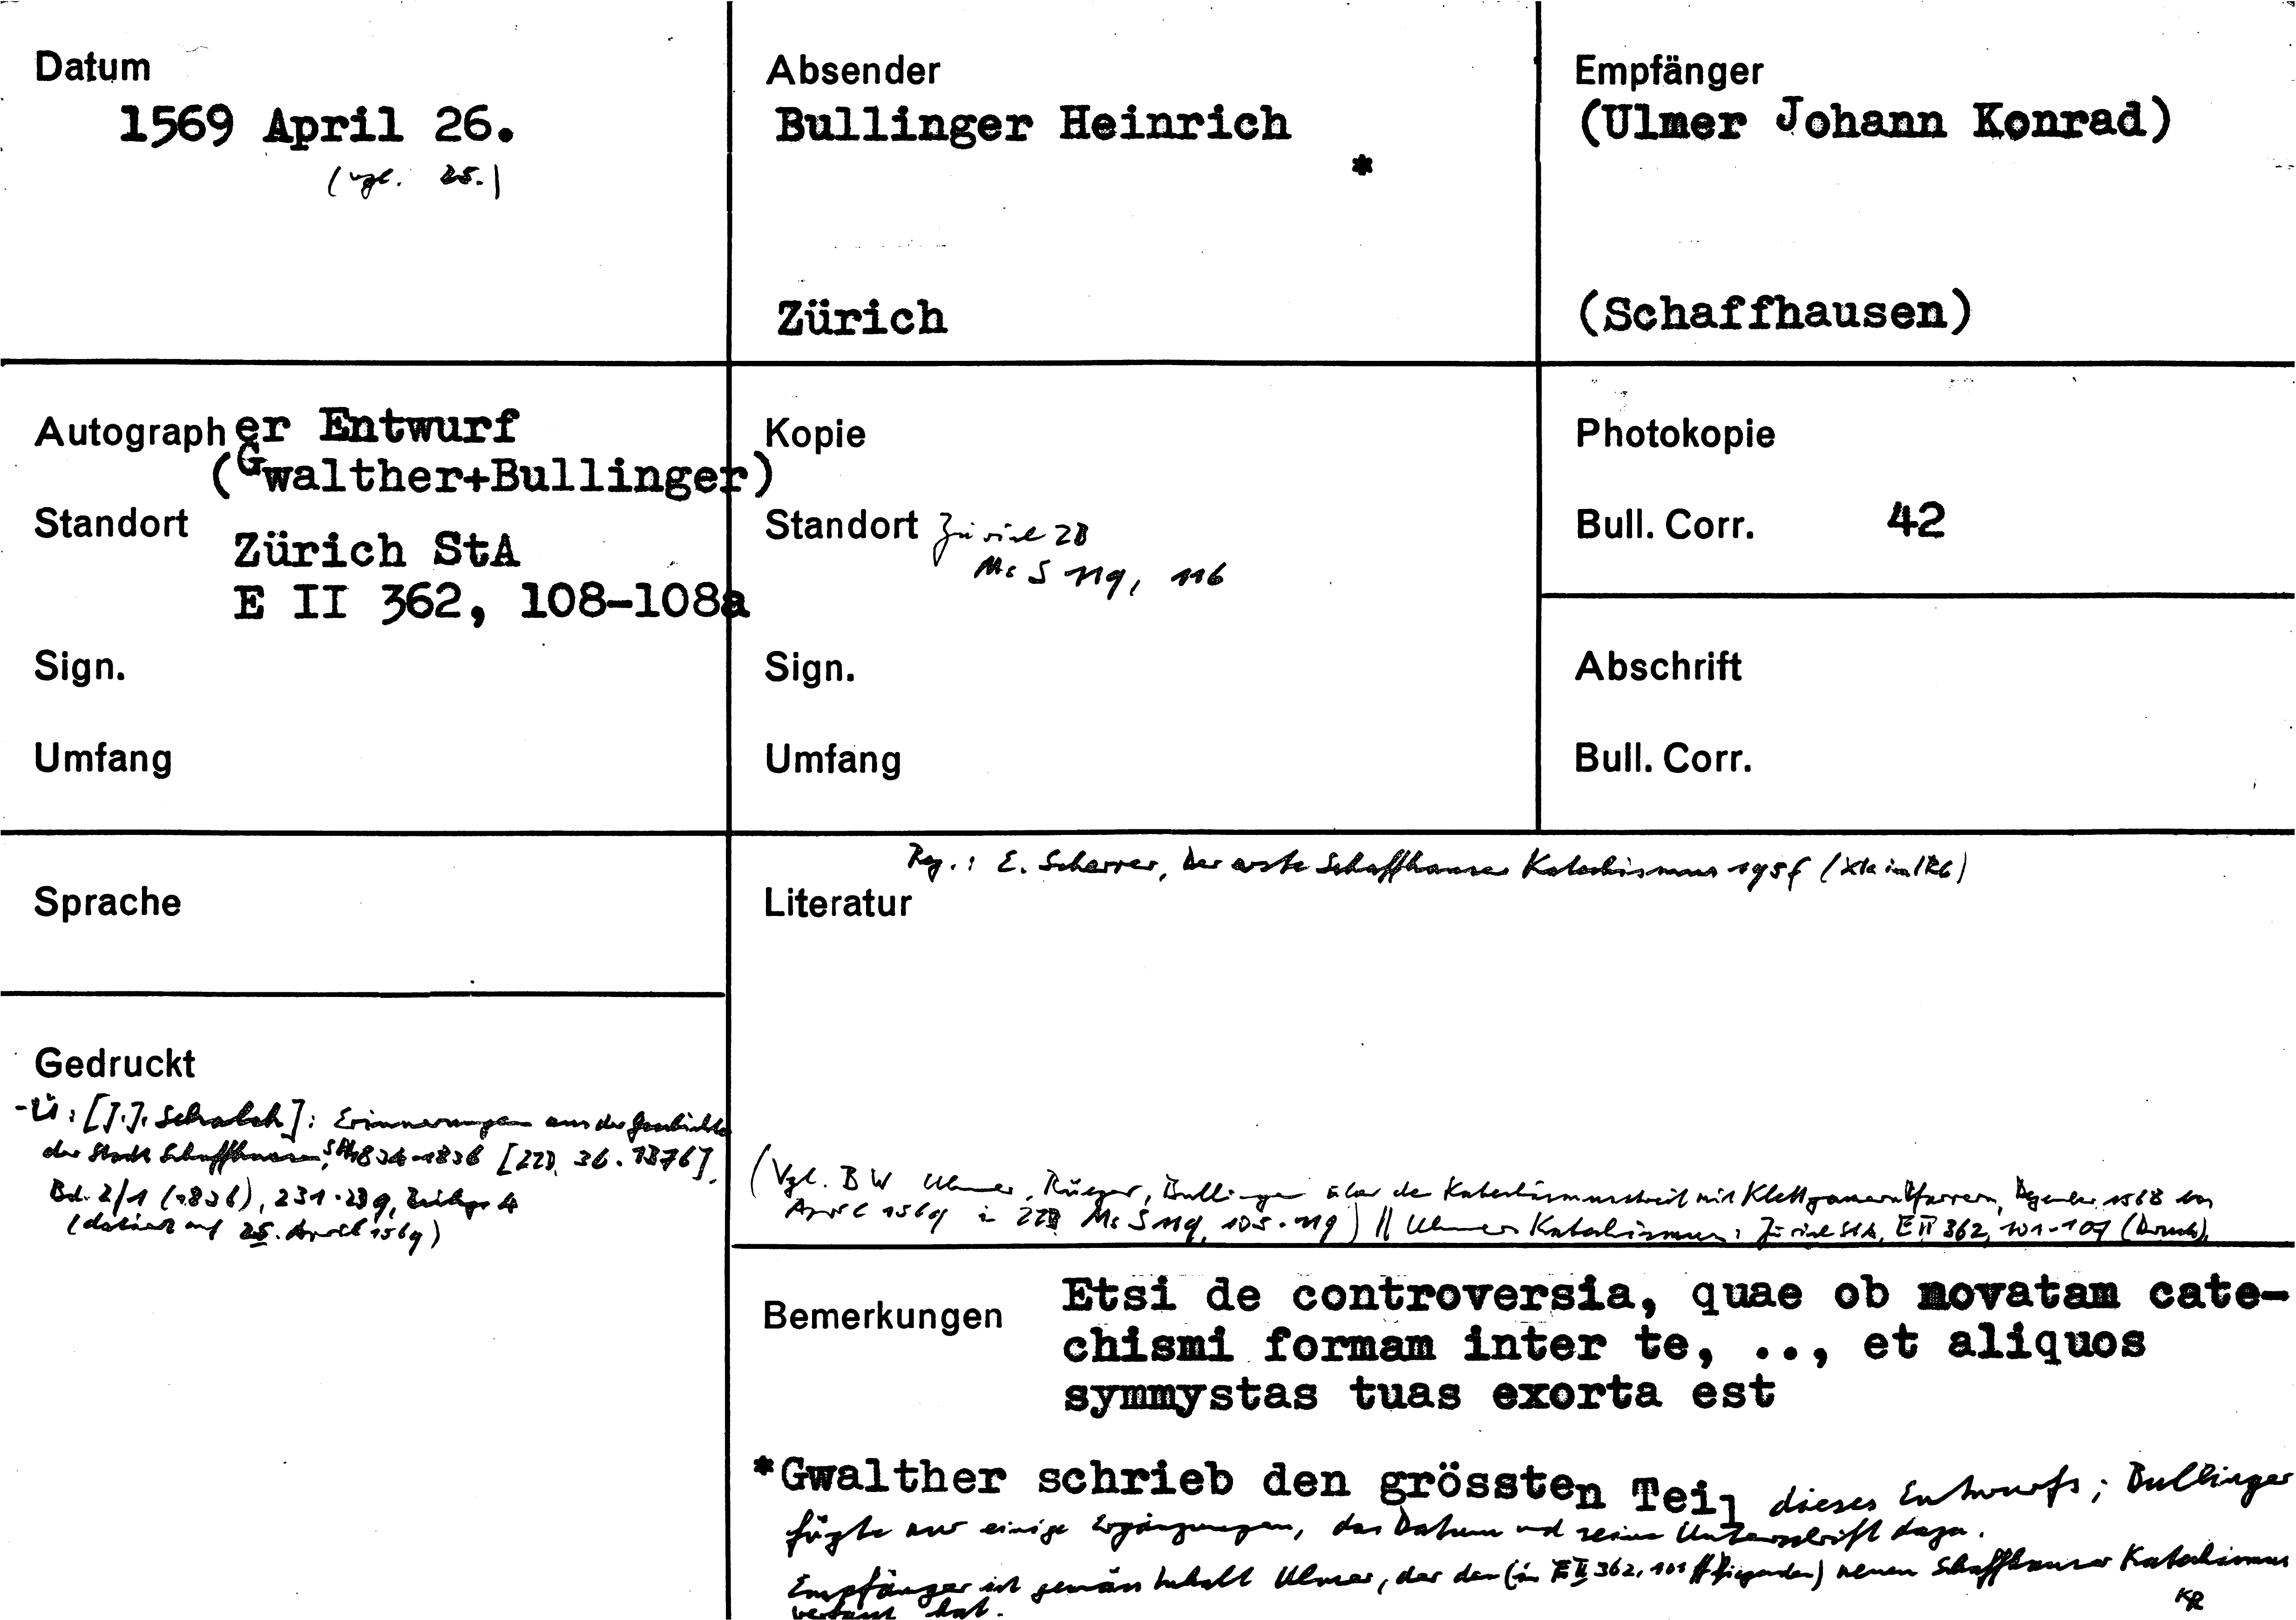 Datum
1569 April 26.
(vgl. 25.)
Absender
Bullinger Heinrich
*
Zürich
Empfänger
(Ulmer Johann Konrad)
(Schaffhausen)
Autographer Entwurf
(Gwalther+Bullinger)
Standort
Zürich StA
E II 362, 108-108a
Sign.
Umfang
Kopie
Standort Zürich ZB
Ms S 119, 116
Sign.
Umfang
Photokopie
Bull. Corr. 42
Abschrift
Bull. Corr.
Sprache
Gedruckt
-Ü: [J.J. Schalch]: Erinnerungen aus der Geschichte
der Stadt Schaffhausen, 1834-1836 [ZZB, 36.1376],
Bd. 2/1 (1836), 231-239, Beilage 4
(datiert auf 25. April 1569)
Reg.: E. Scherrer, Der erste Schaffhauser Katechismus
Literatur
(Vgl. BW Ulmer, Rüeger, Bullinger über den Katechismusstreit mit Klettgauern Pfarrern, Dezember 1568 bis
April 1569 in ZZB Ms S 119, 105-119) // Ulmers Katechismus: Zürich StA, E II 362, 101-107 (Druck).
Bemerkungen
Etsi de controversia, quae ob novatam cate-
chismi formam inter te, .., et aliquos
symmystas tuas exorta est
*Gwalther schrieb den grössten Teil dieses Entwurfs; Bullinger
fügte nur einige Ergänzungen, das Datum und seine Unterschrift dazu.
Empfänger ist gemäss Inhalt Ulmer, der den (in E II 362, 101 ff liegenden) neuen Schaffhauser Katechismus
verfasst hat.
KR